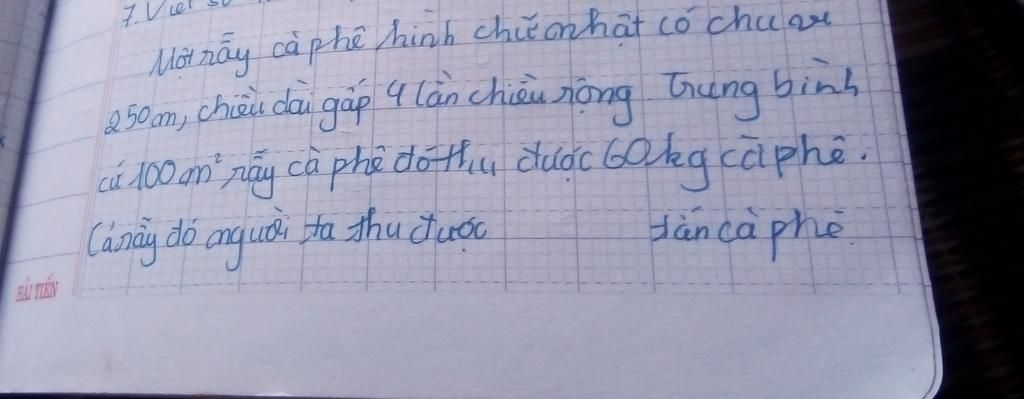 7. Viết số
Một rẫy cà phê hình chữ nhật có chu vi
250m, chiều dài gấp 4 lần chiều rộng Trung bình
cứ 100m² rẫy cà phê đó thu được 60kg cà phê.
Cả rẫy đó người ta thu được tấn cà phê.
HẢI TIẾN